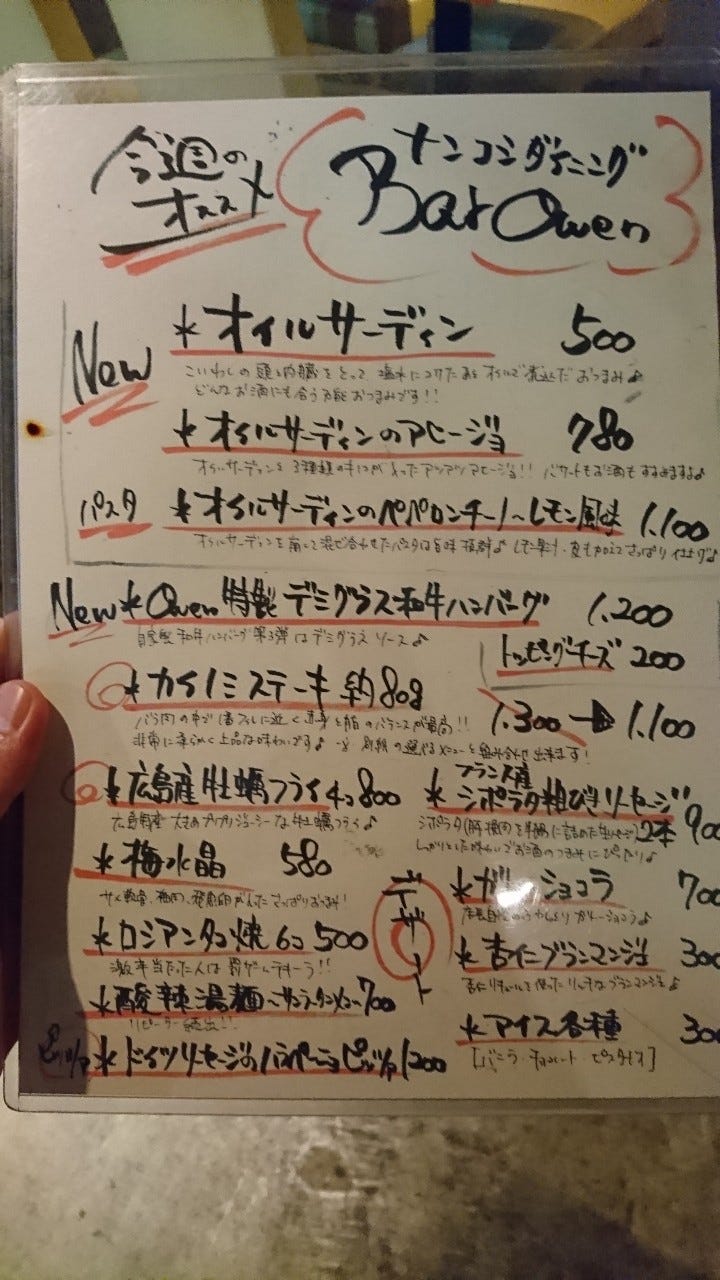 今週の
オススメ
ナンコシダイニング
Bar Owen
New
* オイルサーディン 500
こいわしの頭と内臓をとって 塩水につけたあと オイルで煮込だ おつまみ♪
どんなお酒にも合う万能おつまみです!!
* オイルサーディンのアヒージョ 780
オイルサーディンと3種類のキノコが入ったアツアツアヒージョ!! バケットもお酒もすすみますよ♪
パスタ * オイルサーディンのペペロンチーノ~レモン風味 1.100
オイルサーディンを崩して混ぜ合わせたパスタは旨味抜群♪ レモン果汁・皮も加えてさっぱり仕上げ♪
New * Owen 特製 デミグラス和牛ハンバーグ 1.200
自家製和牛ハンバーグ第3弾はデミグラスソース♪
トッピングチーズ 200
* カイノミステーキ 約80g
1.300 → 1.100
バラ肉の中で1番フィレに近く 赤身と脂のバランスが最高!!
非常に柔らかく上品な味わいです♪ メニューと組み合わせ出来ます!
* 広島産牡蠣フライ 4コ 800
広島県産 大きめプリプリジューシーな牡蠣フライ♪
* 梅水晶 580
サメ軟骨、梅肉、
さっぱりおつまみ!
* ロシアンタコ焼 6コ 500
激辛当たった人は罰ゲームですーう!!
* 酸辣湯麺~サンラータンメン~ 700
リピーター続出!!
ピッツァ * ドイツソーセージのハラペーニョピッツァ 1200
フランス産
* シポラタ粗びきソーセージ
2本 900
シポラタ(豚挽肉を羊腸に詰めた生ソーセージ)
しっかりとした味わいでお酒のつまみにぴったり♪
デザート
* ガトーショコラ 700
店長自慢の ガトーショコラ♪
* 杏仁ブランマンジェ 300
杏仁リキュールを使ったリッチなブランマンジェ♪
* アイス各種 300
[バニラ・チョコレート・ピスタチオ]